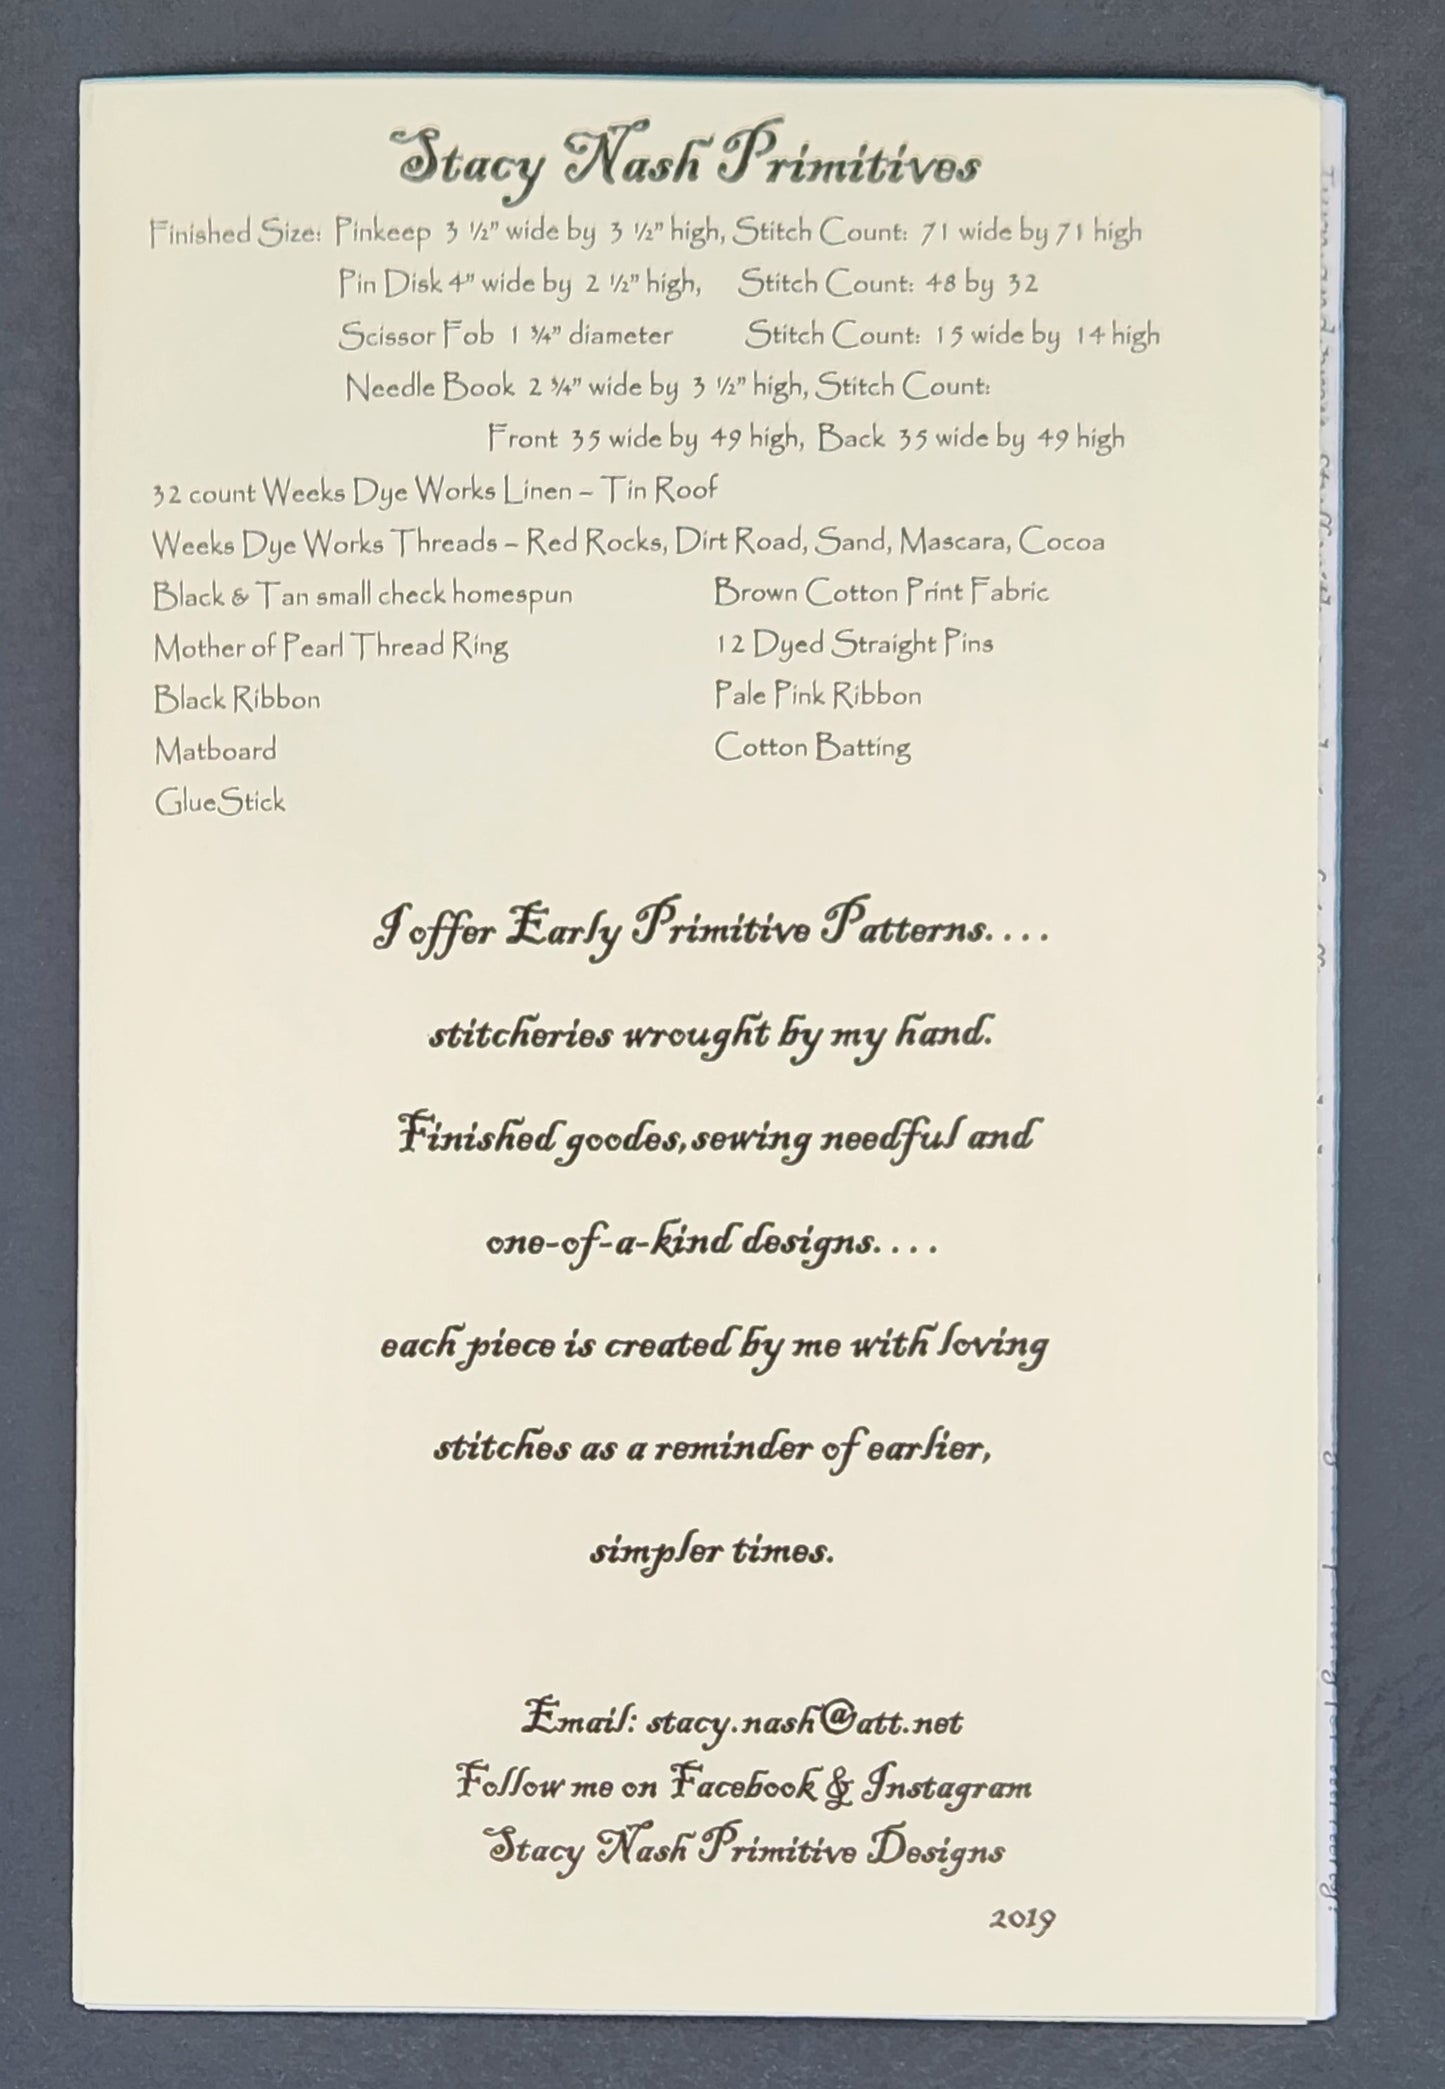 Stacy Nash Primitives
Finished Size: Pinkeep 3 ½” wide by 3 ½” high, Stitch Count: 71 wide by 71 high
Pin Disk 4” wide by 2 ½” high, Stitch Count: 48 by 32
Scissor Fob 1 ¾” diameter Stitch Count: 15 wide by 14 high
Needle Book 2 ¾” wide by 3 ½” high, Stitch Count:
Front 35 wide by 49 high, Back 35 wide by 49 high
32 count Weeks Dye Works Linen – Tin Roof
Weeks Dye Works Threads – Red Rocks, Dirt Road, Sand, Mascara, Cocoa
Black & Tan small check homespun Brown Cotton Print Fabric
Mother of Pearl Thread Ring 12 Dyed Straight Pins
Black Ribbon Pale Pink Ribbon
Matboard Cotton Batting
GlueStick
I offer Early Primitive Patterns....
stitcheries wrought by my hand.
Finished goodes, sewing needful and
one-of-a-kind designs....
each piece is created by me with loving
stitches as a reminder of earlier,
simpler times.
Email: stacy.nash@att.net
Follow me on Facebook & Instagram
Stacy Nash Primitive Designs
2019